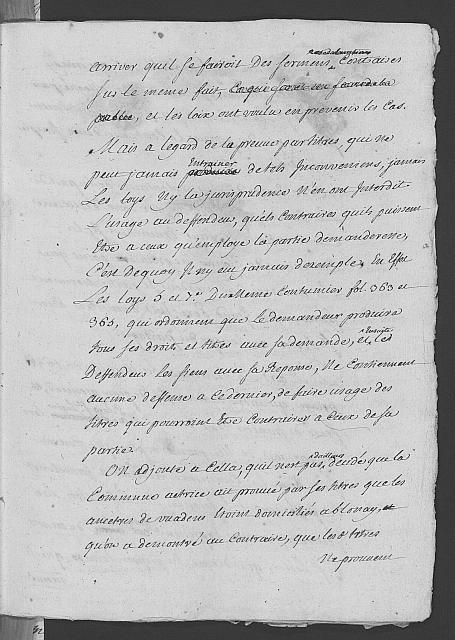 arriver qu'il se fairoit Des sermens Contraires
sur le même fait, Ce qui
et les loix ont voulu en prévenir les Cas.
Mais a legard de la preuve par titres, qui ne
peut jamais Entrainer de tels Inconveniens, jamais
Les loys Ny la jurisprudence N'en ont Interdit
L'usage au deffendeur, quels Contraires quils puissent
Etre a ceux qu'employe la partie demanderesse,
C'est dequoy Il ny eu jamais dexemple. En Effet
Les loys 5 et Du Coutumier fol. 363 et
365, qui ordonnent que le demandeur produira
tous ses droits et titres avec sa demande, et Ensuite le
Deffendeur les siens avec sa Reponse, Ne Contiennent
aucune deffense a Ce dernier, de faire usage des
titres qui pourroient Etre Contraires a Ceux de sa
partie.
On adjoute a Cella, quil n'est pas d'ailleurs decidé que la
Commune actrice ait prouvé par ses titres que les
ancetres de soient domiciliés a blonay, et
qu'on a demontré au Contraire, que les titres
Ne prouvent